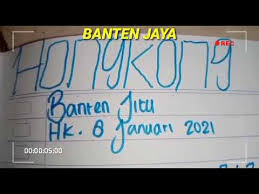 BANTEN JAYA
REC
HONGKONG
Banten Jitu
HK. 8 Januari 2021
00:00:05:00